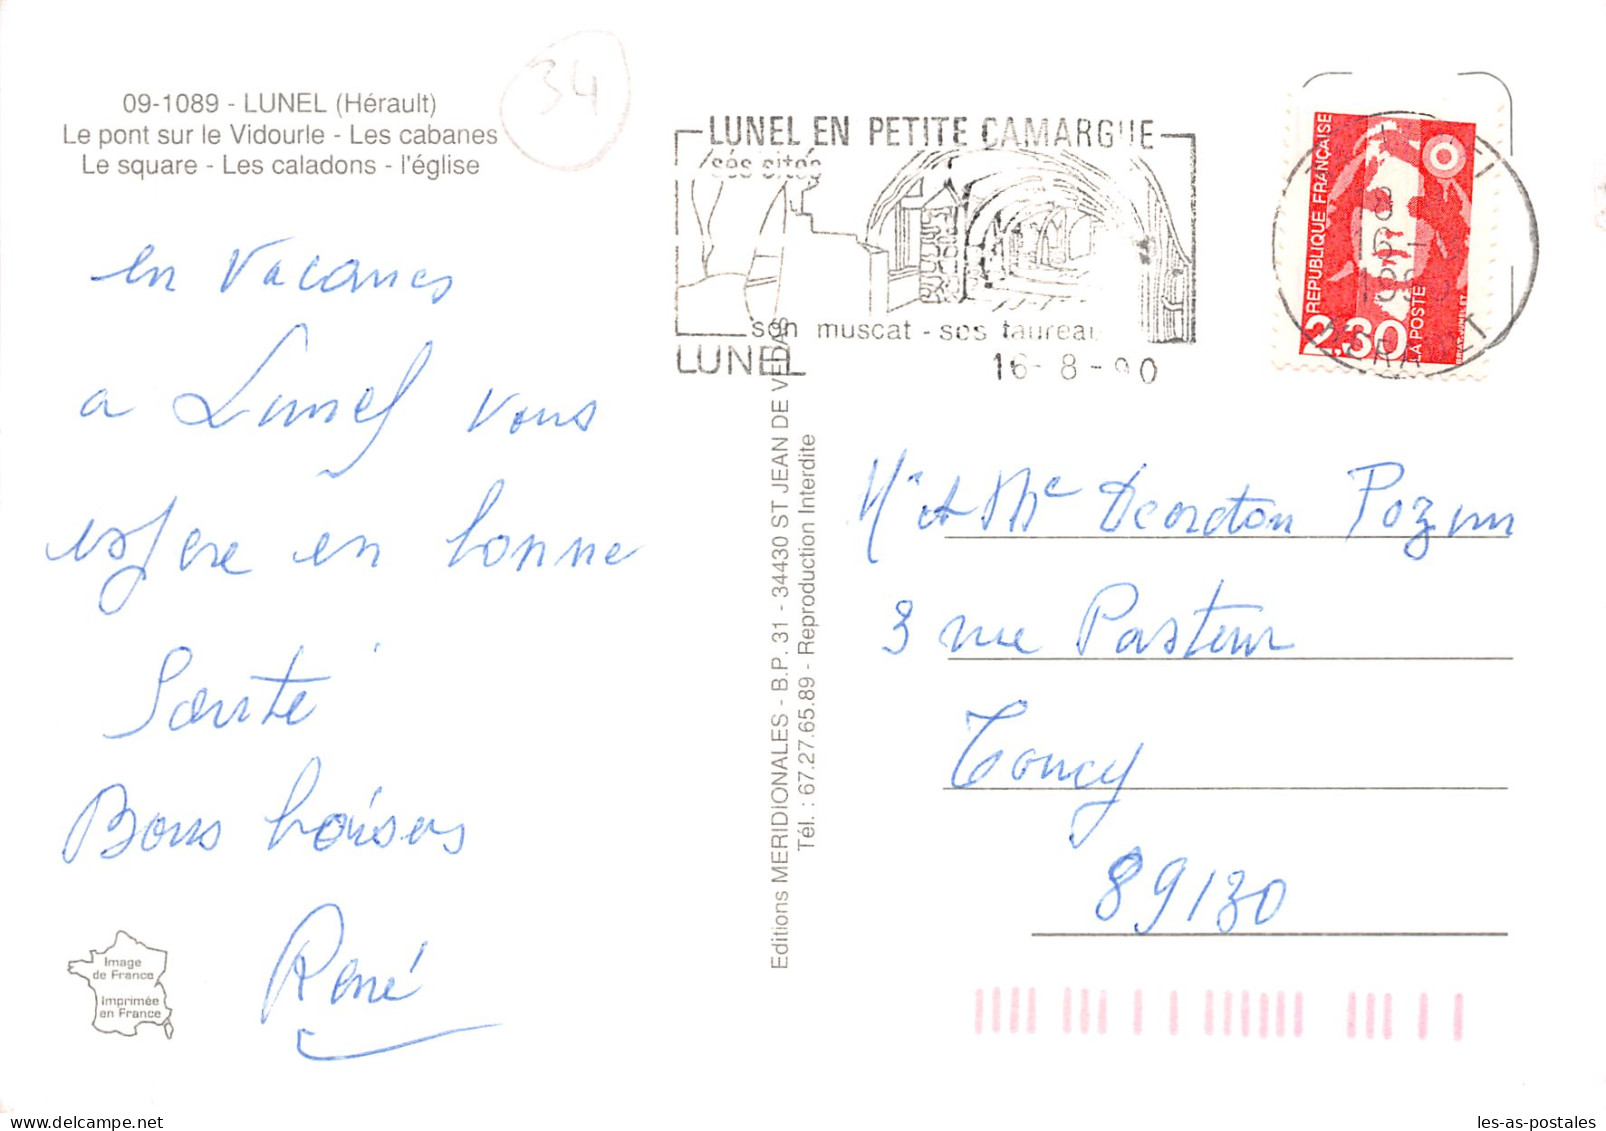 09-1089 - LUNEL (Hérault)
Le pont sur le Vidourle - Les cabanes
Le square - Les caladons - l'église
34
en vacances
a Lunel vous
espere en bonne
Santé
Bons baisers
René
Image
de France
Imprimée
en France
Editions MERIDIONALES - B.P. 31 - 34430 ST JEAN DE VEDAS
Tél. : 67.27.65.89 - Reproduction Interdite
LUNEL EN PETITE CAMARGUE
ses sites
son muscat - ses taureau
LUNEL
16-8-90
REPUBLIQUE FRANÇAISE
2,30
LA POSTE
HERAULT
Mr et Me
3 rue Pasteur
Toucy
89130
les-as-postales